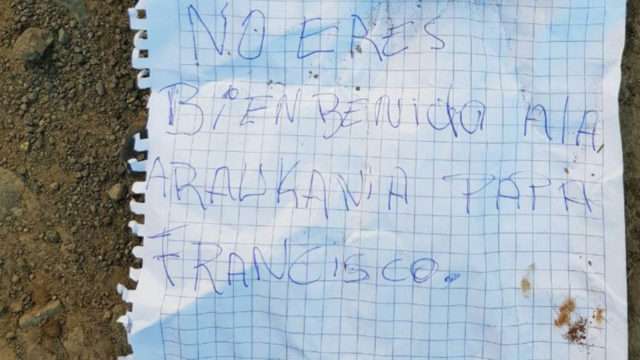 NO ERES
BiENBENido A lA
ARAUKANiA PAPA
FRANCiSCO.